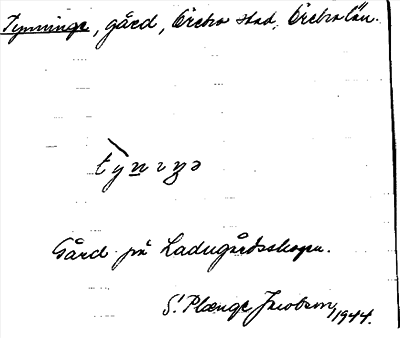 Tynninge, gård, Örebro stad, Örebro län.
Gård på Ladugårdsskogen.
S. Plænge Jacobson, 1944.